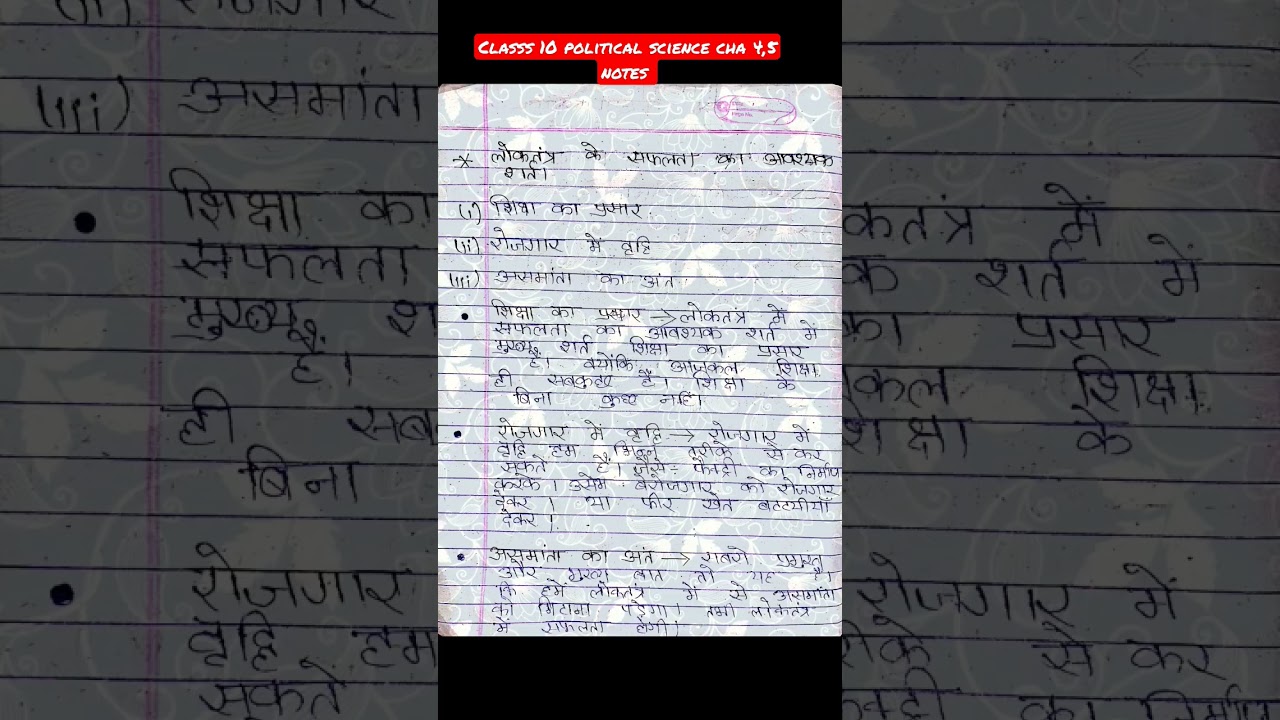 CLASSS 10 POLITICAL SCIENCE CHA 4,5
NOTES
* लोकतंत्र के सफलता का आवश्यक
शर्त।
(i) शिक्षा का प्रसार
(ii) रोजगार में वृद्दि
(iii) असमांता का अंत
• शिक्षा का प्रसार → लोकतंत्र में
सफलता का आवश्यक शर्त में
मुख्य शर्त शिक्षा का प्रसार
है। क्योंकि आजकल शिक्षा
ही सबकुछ है। शिक्षा के
बिना कुछ नहि।
• रोजगार में वृद्दि → रोजगार में
वृद्दि हम तरीके से कर
सकते है। जैसे का निर्माण
करके। उसमे बेरोजगार को रोजगार
देकर। या फीर खेत
देकर।
• असमांता का अंत → सबसे
और मुख्य बात तो यह है।
कि हमे लोकतंत्र में से असमांता
को मिटाना पड़ेगा। तभी लोकतंत्र
में सफलता होगी।